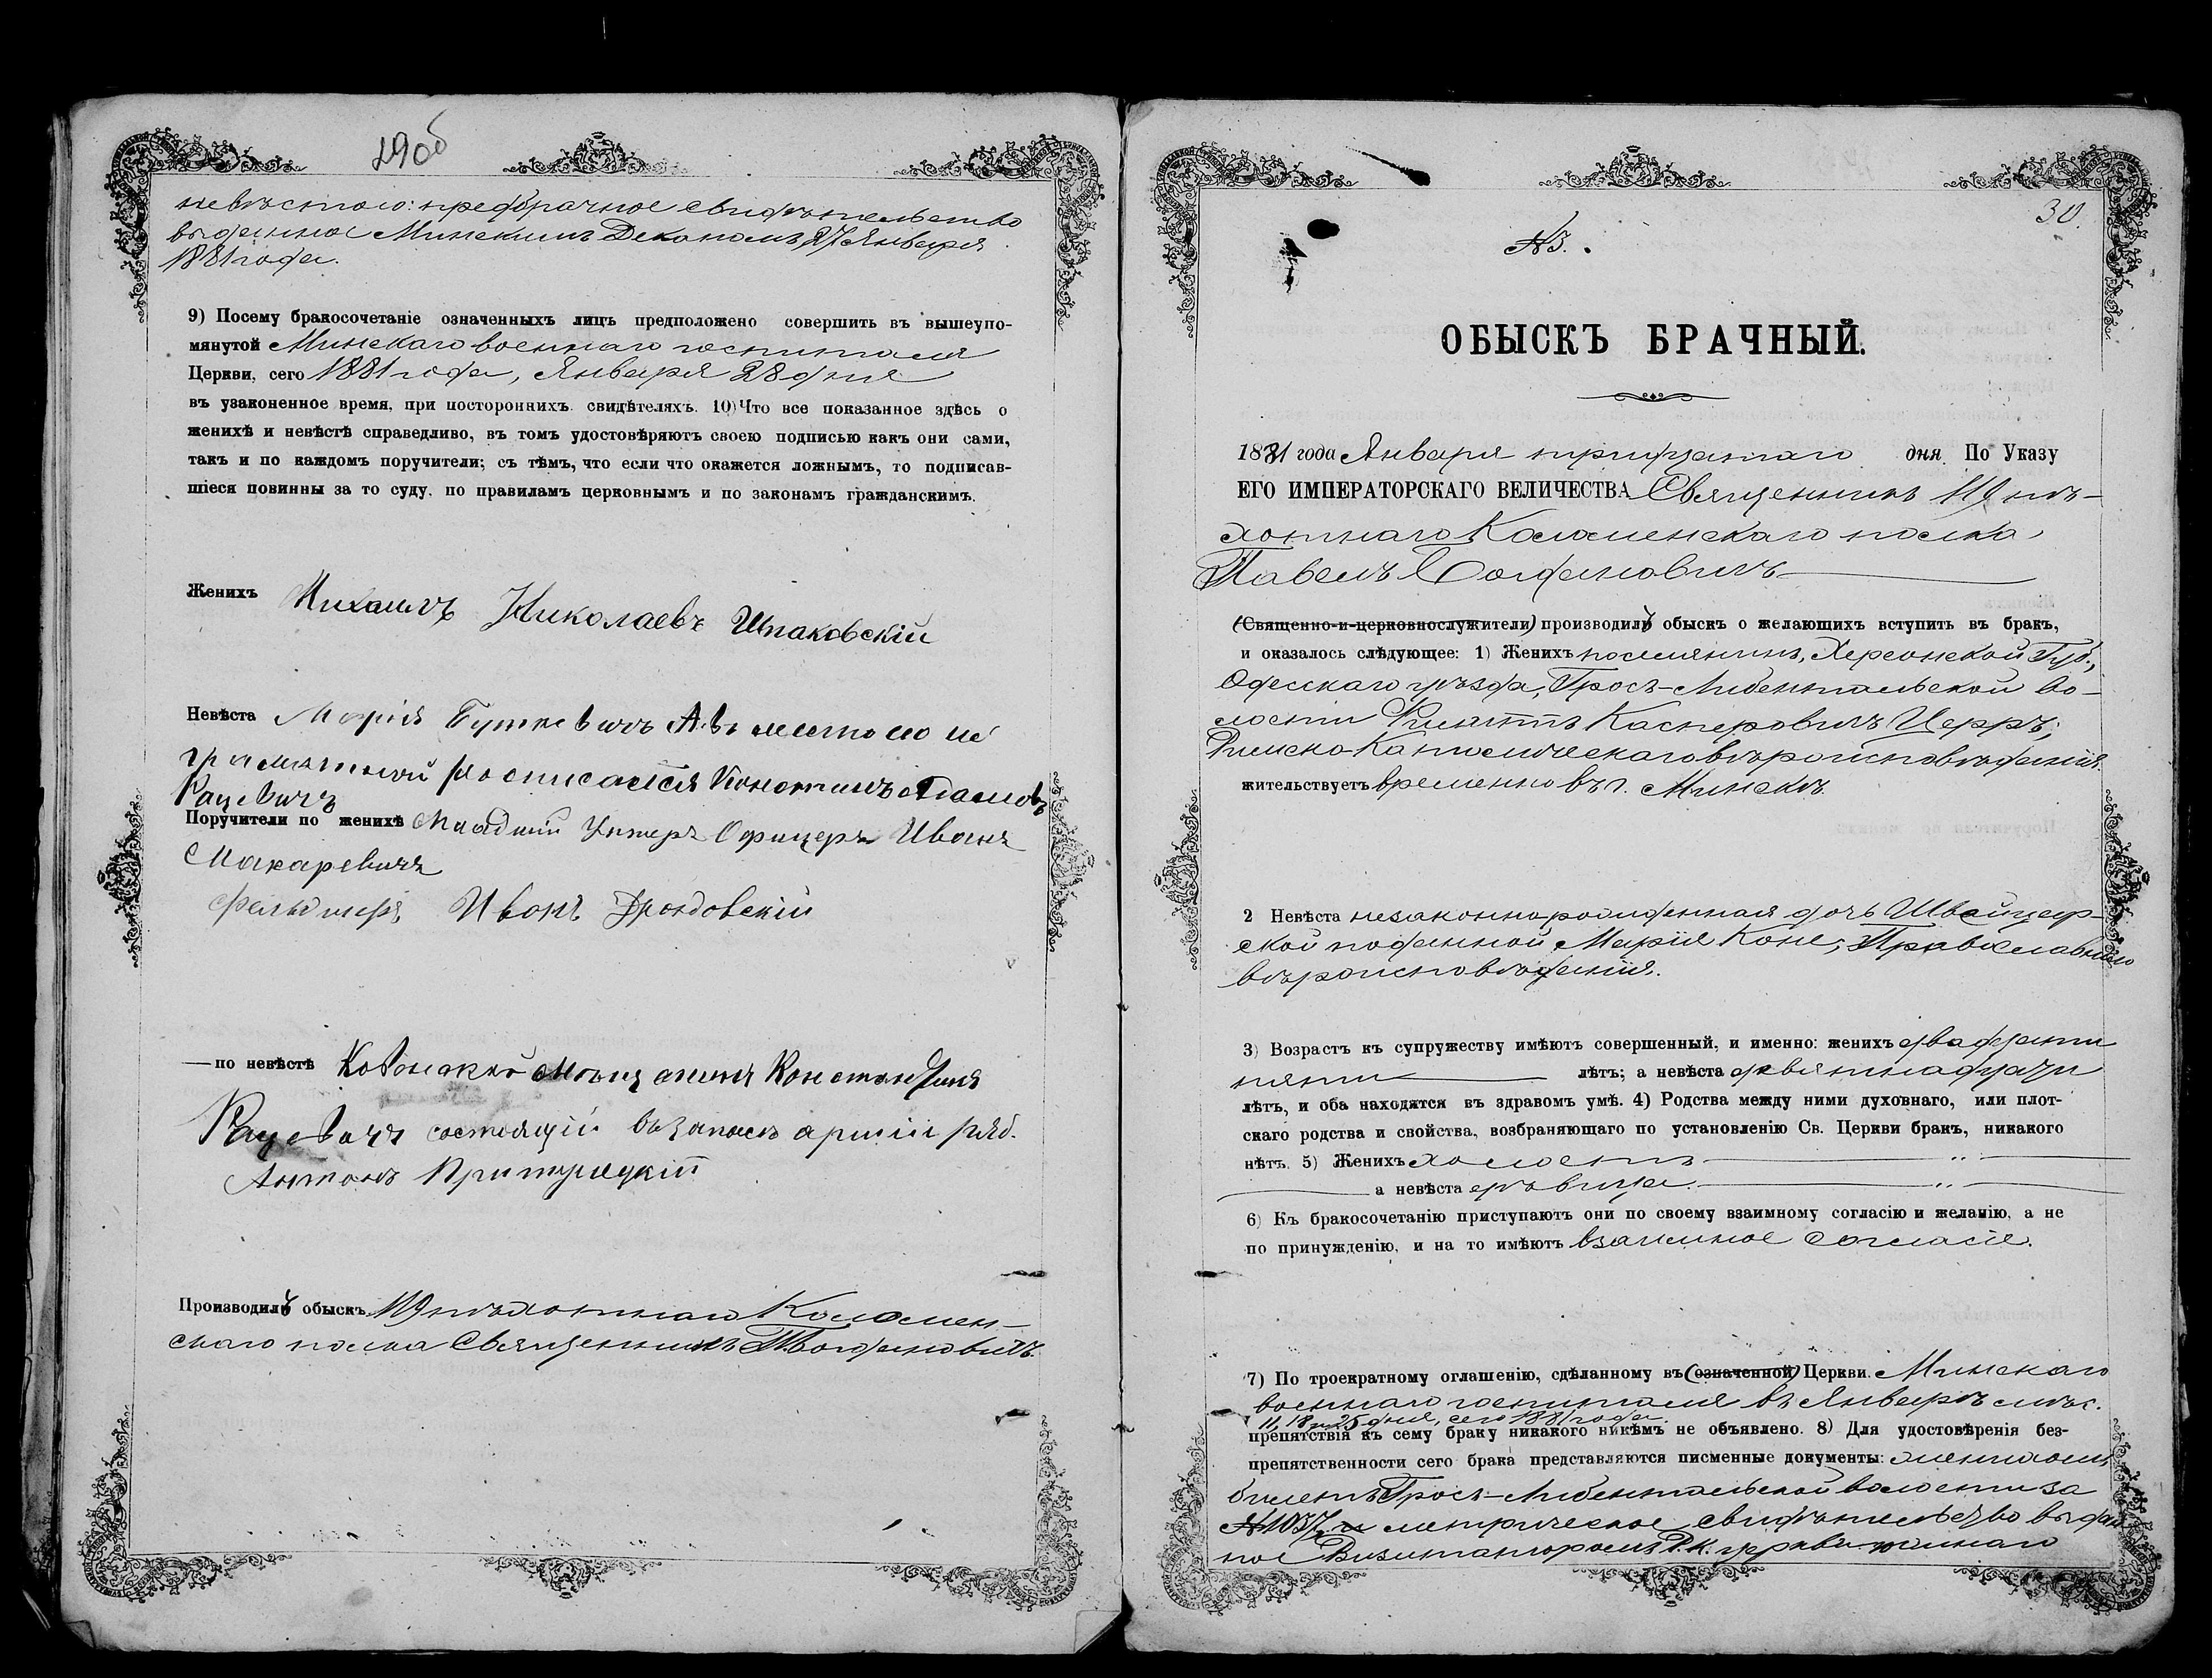 29об
невѣстою: предбрачное свидѣтельство
выданное Минскимъ Деканомъ 27 Января
1881 года.
9) Посему бракосочетаніе означенныхъ лицъ предположено совершить въ вышеупо-
мянутой Минскаго военнаго госпиталя
Церкви, сего 1881 года, Января 28 дня
въ узаконенное время, при постороннихъ свидѣтеляхъ. 10) Что все показанное здѣсь о
женихѣ и невѣстѣ справедливо, въ томъ удостовѣряютъ своею подписью какъ они сами,
такъ и по каждомъ поручители; съ тѣмъ, что если что окажется ложнымъ, то подписав-
шіеся повинны за то суду, по правиламъ церковнымъ и по законамъ гражданскимъ.
Женихъ Михаилъ Николаевъ Шпаковскій
Невѣста Марія Буткевичъ А въ место ею не
грамотной росписался Константинъ
Рацевичъ
Поручители по женихѣ Младшій Унтеръ Офицеръ Иванъ
Макаревичъ
Фельдшеръ Иванъ Дроздовскій
— по невѣстѣ Ковенскій мѣщанинъ Константинъ
Рацевичъ состоящій въ запасѣ арміи ряд.
Антонъ
Производилъ обыскъ 119 пѣхотнаго Коломен-
скаго полка Священникъ П. Богдановичъ.
30.
№ 3.
ОБЫСКЪ БРАЧНЫЙ.
1881 года Января тридцатаго дня. По Указу
ЕГО ИМПЕРАТОРСКАГО ВЕЛИЧЕСТВА Священникъ 119 пѣ-
хотнаго Коломенскаго полка
Павелъ Богдановичъ
(Священно-и-церковнослужители) производилъ обыскъ о желающихъ вступить въ бракъ,
и оказалось слѣдующее: 1) Женихъ поселянинъ, Херсонской Губ.,
Одесскаго уѣзда, Гросъ-Либентальской во-
лости Касперовичъ Церръ;
Римско-Католическаго вѣроисповѣданія.
жительствуетъ временно въ г. Минскѣ.
2 Невѣста незаконнорожденная дочь Швейцар-
ской подданной, Марія Коне; Православнаго
вѣроисповѣданія.
3) Возрастъ къ супружеству имѣютъ совершенный, и именно: женихъ двадцати
пяти лѣтъ; а невѣста девятнадцати
лѣтъ, и оба находятся въ здравомъ умѣ. 4) Родства между ними духовнаго, или плот-
скаго родства и свойства, возбраняющаго по установленію Св. Церкви бракъ, никакого
нѣтъ. 5) Женихъ холостъ
а невѣста дѣвица.
6) Къ бракосочетанію приступаютъ они по своему взаимному согласію и желанію, а не
по принужденію, и на то имѣютъ взаимное согласіе.
7) По троекратному оглашенію, сдѣланному въ (означенной) Церкви Минскаго
военнаго госпиталя въ Январѣ мѣс.
11, 18 и 25 дня, сего 1881 года
препятствія къ сему браку никакого никѣмъ не объявлено. 8) Для удостовѣренія без-
препятственности сего брака представляются писменные документы:
билетъ Гросъ-Либентальской волости за
№ 1037, и метрическое свидѣтельство выдан
ное Визитаторомъ Р.К. церкви